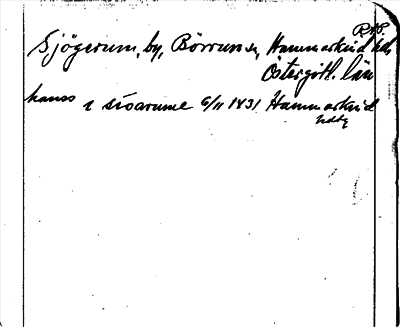 RAP.
Sjögerum, by, Börrum sn, Hammarkind hd,
Östergötl. län
hanss i siöarume 6/11 1431 Hammarkind
hdbg